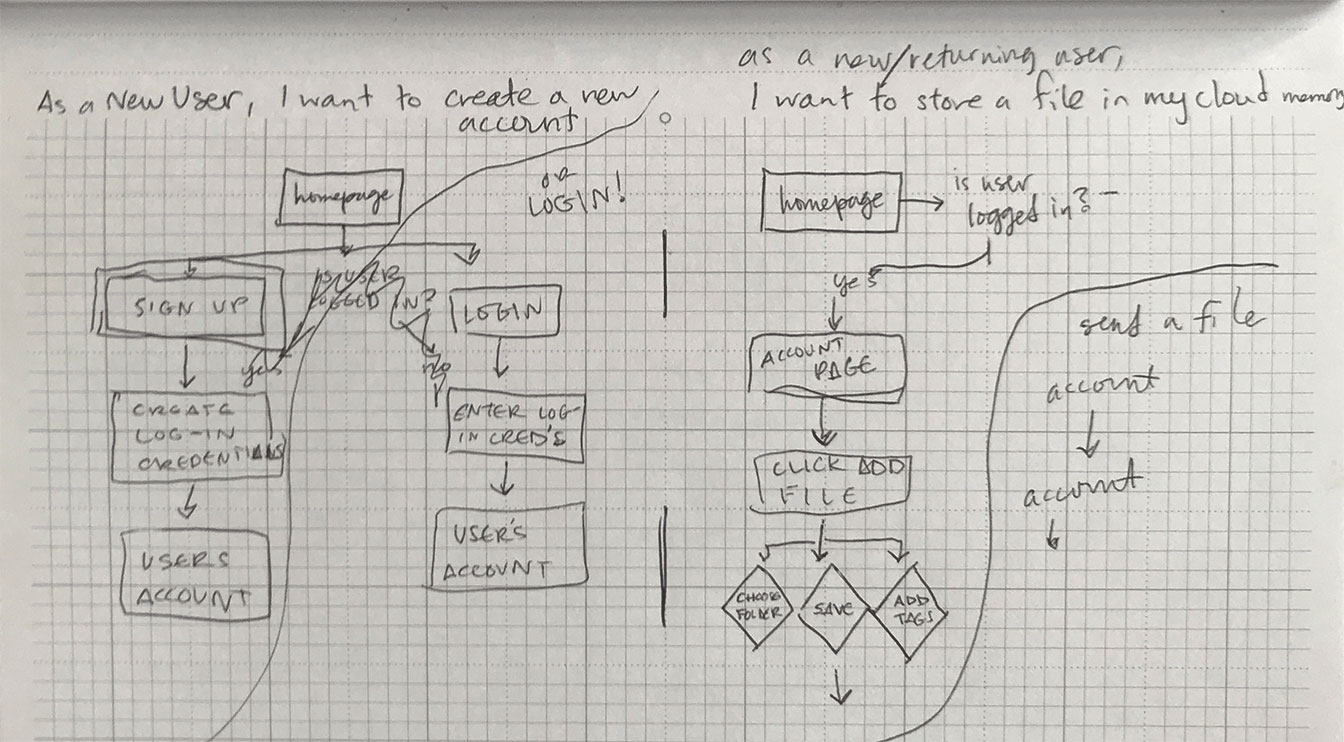 As a New User, I want to create a new
account
or
LOGIN!
homepage
IS USER
LOGGED IN?
yes
no
SIGN UP
CREATE
LOG-IN
CREDENTIALS
USERS
ACCOUNT
LOGIN
ENTER LOG-
IN CRED'S
USER'S
ACCOUNT
as a new/returning user,
I want to store a file in my cloud memory
homepage
is user
logged in?
yes
ACCOUNT
PAGE
CLICK ADD
FILE
CHOOSE
FOLDER
SAVE
ADD
TAGS
send a file
account
account